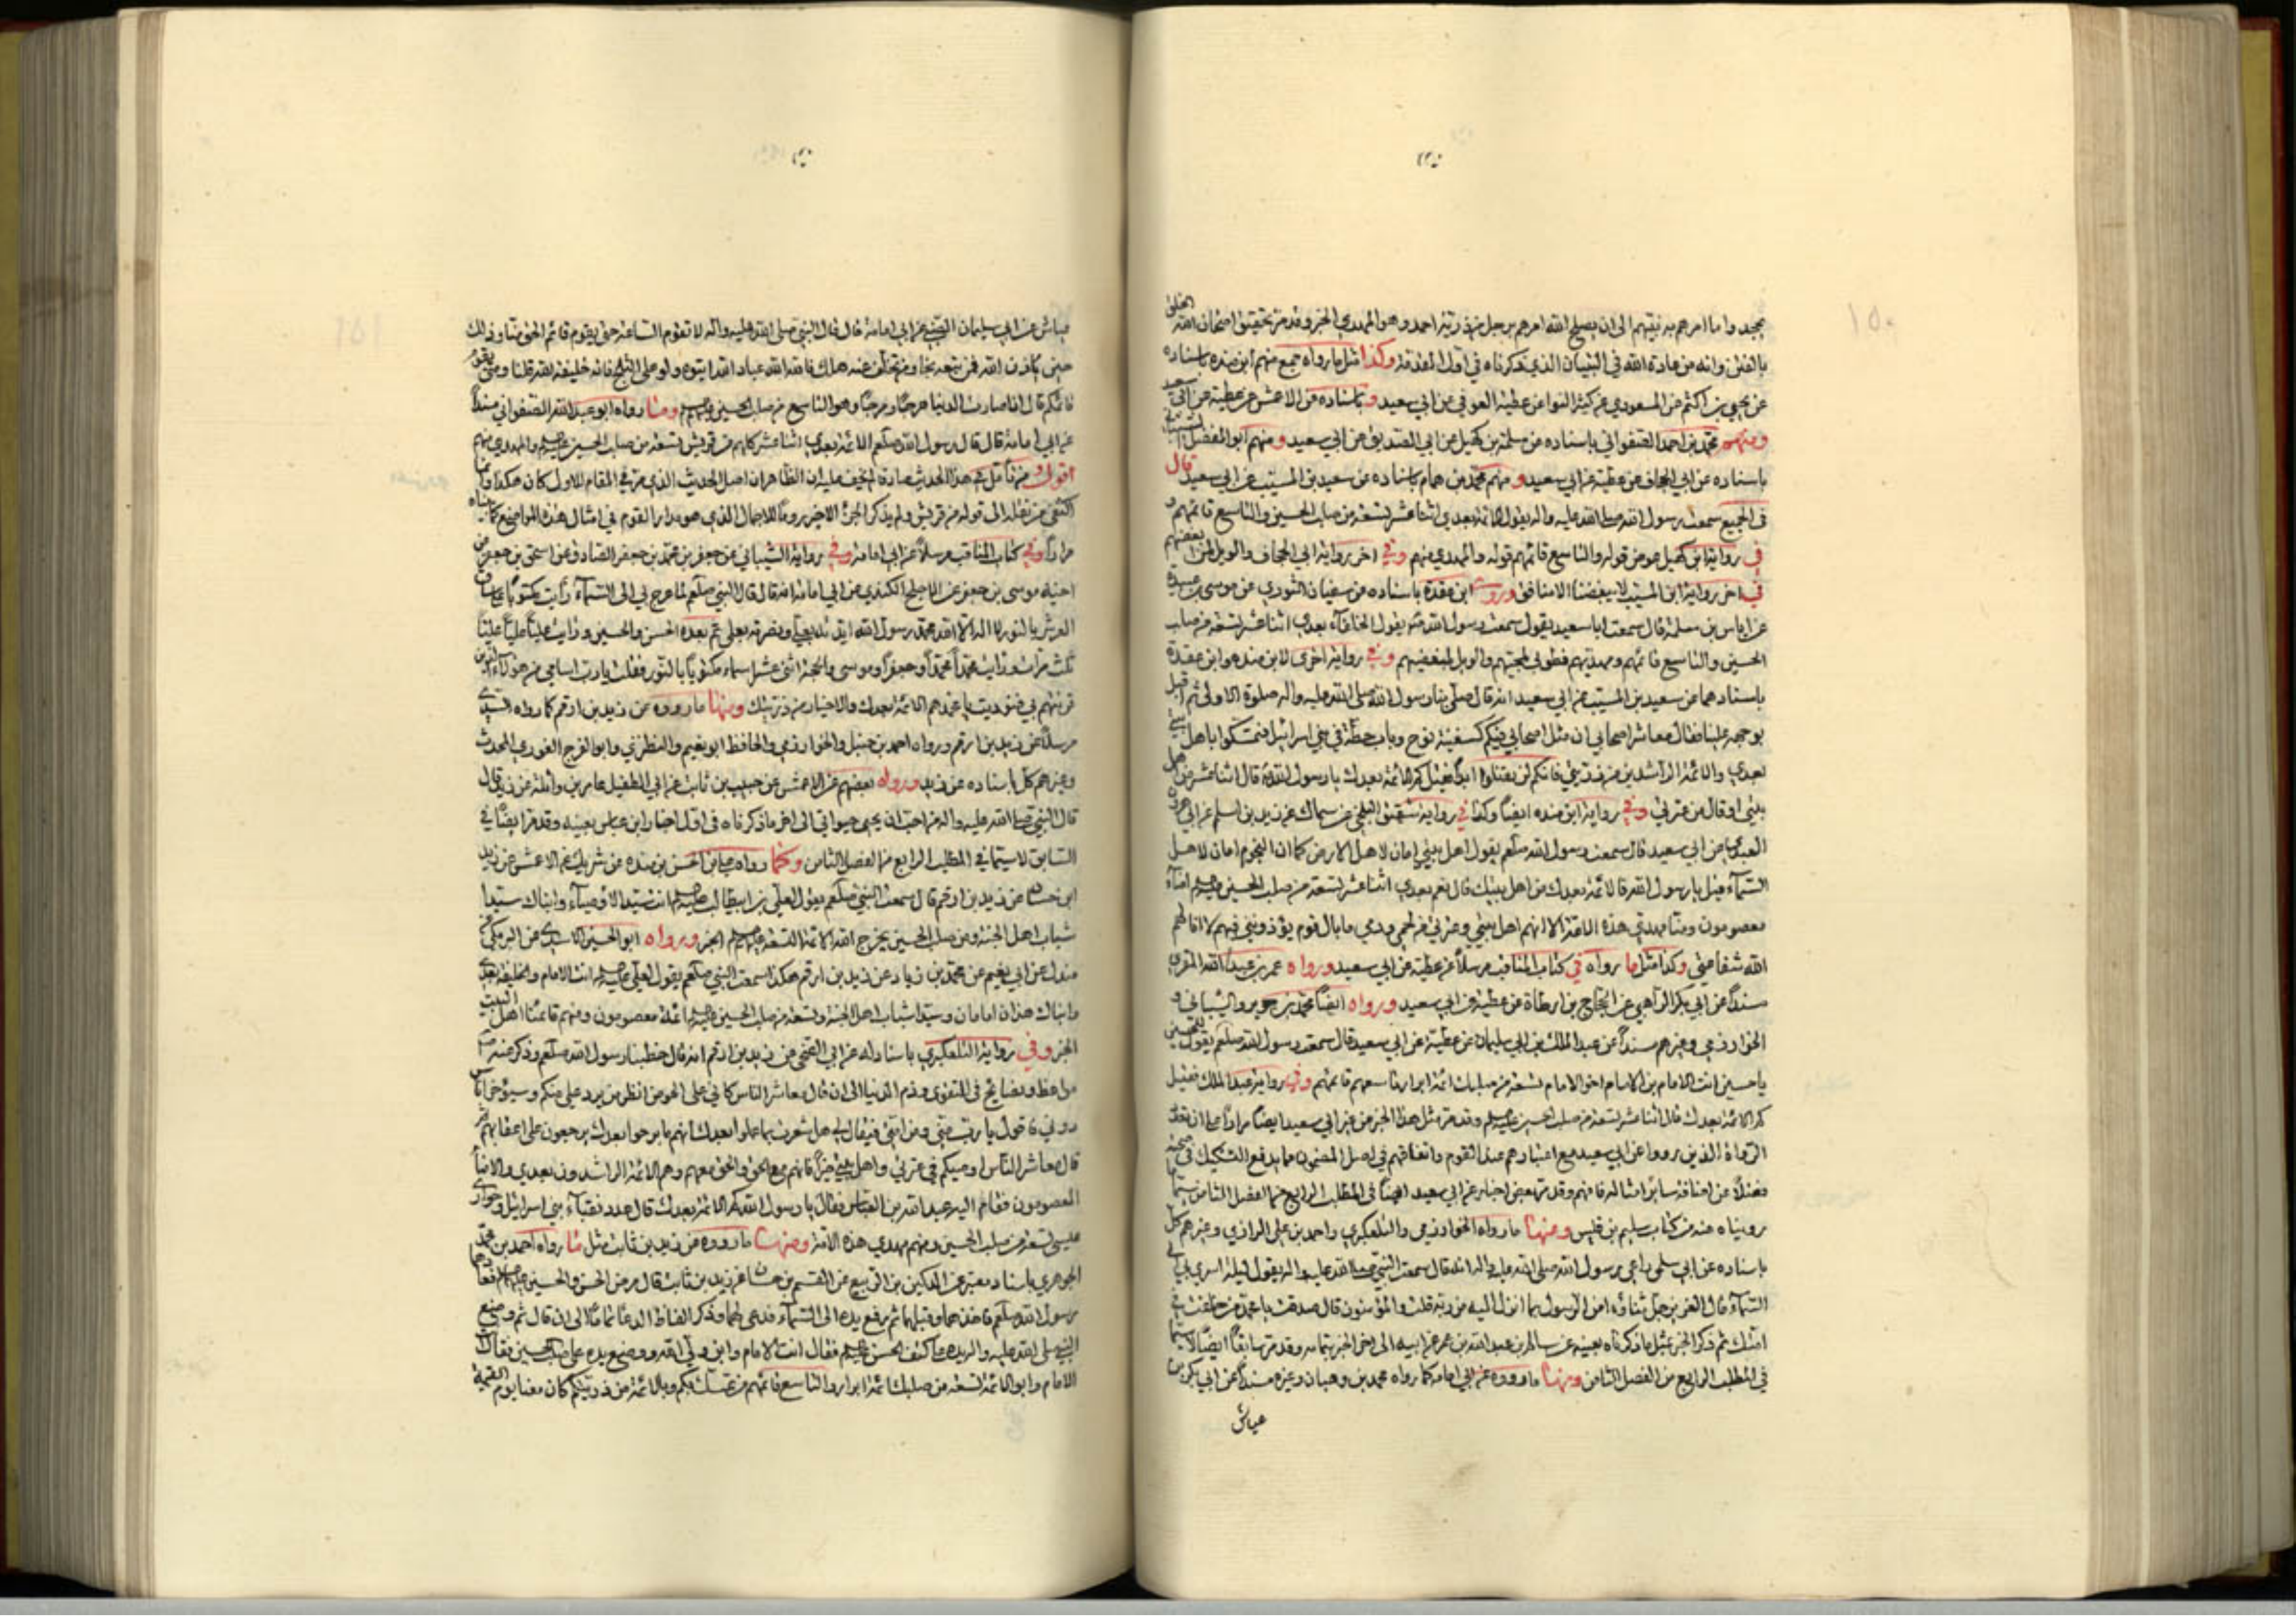 بجهد واما امرهم به نبيهم الى ان يصلح الله امرهم برجل من ذرية احمد وهو المهدي الخبر وقد مر تحقيق امتحان الله الخلق
بالفتن وانه من عادة الله في التبيان الذي ذكرناه في اول المقدمة وكذا مثل ما رواه جمع منهم ابن منده باسناده
عن يحيى بن اكثم عن المسعودي عن كثير النوا عن عطية العوفي عن ابي سعيد وباسناده عن الاعمش عن عطية عن ابي سعيد
ومنهم محمد بن احمد الصفواني باسناده عن سلمة بن كهيل عن ابي الصديق عن ابي سعيد ومنهم ابو المفضل الشيباني
باسناده عن ابي الجحاف عن عطية عن ابي سعيد ومنهم محمد بن همام باسناده عن سعيد بن المسيب عن ابي سعيد قال
في الجميع سمعت رسول الله صلى الله عليه واله يقول الائمة بعدي اثنا عشر تسعة من صلب الحسين والتاسع قائمهم و
في رواية ابن كهيل عوض قوله والتاسع قائمهم قوله والمهدي منهم وفي اخر رواية ابي الجحاف والويل لمن ابغضهم
في اخر رواية ابن المسيب لا يبغضنا الا منافق وروى ابن عقدة باسناده عن سفيان الثوري عن موسى بن عبيدة
عن اياس بن سلمة قال سمعت ابا سعيد يقول سمعت رسول الله ص يقول الخلفاء بعدي اثنا عشر تسعة من صلب
الحسين والتاسع قائمهم ومهديهم فطوبى لمحبيهم والويل لمبغضيهم وفي رواية اخرى لابن منده وابن عقدة
باسنادهما عن سعيد بن المسيب عن ابي سعيد انه قال صلى بنا رسول الله صلى الله عليه واله صلوة الاولى ثم اقبل
بوجهه علينا فقال معاشر اصحابي ان مثل اصحابي فيكم كسفينة نوح وباب حطة في بني اسرائيل فتمسكوا باهل بيتي
بعدي والائمة الراشدين من ذريتي فانكم لن تضلوا ابدا فقيل كم الائمة بعدك يا رسول الله قال اثنا عشر من اهل
بيتي او قال من عترتي وفي رواية ابن منده ايضا وكذا في رواية شقيق البلخي عن سماك عن زيد بن اسلم عن ابي هرون
العبدي عن ابي سعيد قال سمعت رسول الله صلعم يقول اهل بيتي امان لاهل الارض كما ان النجوم امان لاهل
السماء قيل يا رسول الله فالائمة بعدك من اهل بيتك قال نعم بعدي اثنا عشر تسعة من صلب الحسين امناء
معصومون ومنا مهدي هذه الامة الا انهم اهل بيتي وعترتي من لحمي ودمي ما بال قوم يؤذونني فيهم لا انالهم
الله شفاعتي وكذا مثل ما رواه في كتاب المناقب مرسلا عن عطية عن ابي سعيد ورواه عمر بن عبد الله المقري
مسندا عن ابي بكر الراهبي عن الحجاج بن ارطاة عن عطية عن ابي سعيد ورواه ايضا محمد بن جرير والشيباني و
الخوارزمي وغيرهم مسندا عن عبد الملك بن ابي سليمان عن عطية عن ابي سعيد قال سمعت رسول الله صلعم يقول للحسين
يا حسين انت الامام بن الامام اخو الامام تسعة من صلبك ائمة ابرار تاسعهم قائمهم وفي رواية عبد الملك فقيل
كم الائمة بعدك قال اثنا عشر تسعة من صلب الحسين وقد مر مثل هذا الخبر من غير ابي سعيد ايضا مرارا على ان تعدد
الرواة الذين رووا عن ابي سعيد مع اعتبارهم عند القوم واتفاقهم في اصل المضمون مما يدفع التشكيك في صحته
فضلا عن سائر امثاله فافهم وقد مر بعض اخبار عن ابي سعيد ايضا في المطلب الرابع من الفصل الثامن سيما
رويناه عنه من كتاب سليم بن قيس ومنها ما رواه الخوارزمي والتلعكبري واحمد بن علي الرازي وغيرهم كل
باسناده عن ابي سلمى راعي رسول الله صلى الله عليه واله انه قال سمعت النبي صلى الله عليه واله يقول ليلة اسري بي الى
السماء قال العزيز جل ثناؤه امن الرسول بما انزل اليه من ربه قلت والمؤمنون قال صدقت يا محمد من خلفت في
امتك ثم ذكر الخبر مثل ما ذكرناه بعينه عن سالم بن عبد الله بن عمر عن ابيه الى اخر الخبر بتمامه وقد مر سابقا ايضا لا سيما
في المطلب الرابع من الفصل الثامن ومنها ما رووه عن ابي امامة كما رواه محمد بن وهبان وغيره مسندا عن ابي بكر بن
عياش
عياش عن ابي سليمان الضبي عن ابي امامة قال قال النبي صلى الله عليه واله لا تقوم الساعة حتى يقوم قائم الحق منا وذلك
حين ياذن الله فمن تبعه نجا ومن تخلف عنه هلك فالله الله عباد الله ايتوه ولو على الثلج فانه خليفة الله قلنا ومتى يقوم
قائمكم قال اذا صارت الدنيا هرجا ومرجا وهو التاسع من صلب الحسين ومنها رواه ابو عبد الله الصفواني مسندا
عن ابي امامة قال قال رسول الله صلعم الائمة بعدي اثنا عشر كلهم من قريش تسعة من صلب الحسين والمهدي منهم
اقول ومن تامل في هذا الحديث صادقا لم يخف عليه ان الظاهر ان اصل الحديث الذي مر في المقام الاول كان هكذا وانما
اكتفى من نقله الى قوله من قريش ولم يذكر الجزء الاخير روما للاجمال الذي هو مدار القوم في امثال هذه المواضع كما بيناه
مرارا وفي كتاب المناقب مرسلا عن ابي امامة وفي رواية الشيباني عن جعفر بن محمد بن جعفر الصادق عن اسحق بن جعفر عن
اخيه موسى بن جعفر عن الاجلح الكندي عن ابي امامة انه قال قال النبي صلعم لما عرج بي الى السماء رأيت مكتوبا على ساق
العرش بالنور لا اله الا الله محمد رسول الله ايدته بعلي ونصرته بعلي ثم بعده الحسن والحسين ورأيت عليا عليا عليا
ثلث مرات ورأيت محمدا محمدا وجعفرا وموسى والحجة اثنى عشر اسما مكتوبا بالنور فقلت يا رب اسامي من هؤلاء الذين
قرنتهم بي فنوديت يا محمد هم الائمة بعدك والاخيار من ذريتك ومنها ما رووه عن زيد بن ارقم كما رواه السدي
مرسلا عن زيد بن ارقم ورواه احمد بن حنبل والخوارزمي والحافظ ابو نعيم والنطنزي وابو الفرج الغوري المحدث
وغيرهم كل باسناده عن زيد ورواه بعضهم عن الاعمش عن حبيب بن ثابت عن ابي الطفيل عامر بن واثلة عن زيد قال
قال النبي صلى الله عليه واله من احب ان يحيى حيواتي الى اخر ما ذكرناه في اول اخبار ابن عباس بعينه وقد مر ايضا في
السابق لا سيما في المطلب الرابع من الفصل الثامن وكما رواه علي بن الحسن بن منده عن شريك عن الاعمش عن زيد
ابن حسان عن زيد بن ارقم قال سمعت النبي صلعم يقول لعلي بن ابيطالب انت سيد الاوصياء وابناك سيدا
شباب اهل الجنة ومن صلب الحسين يخرج الله الائمة التسعة الخبر ورواه ابو الحسين الاسدي عن البرمكي عن
مندل عن ابي نعيم عن محمد بن زياد عن زيد بن ارقم هكذا سمعت النبي صلعم يقول لعلي انت الامام والخليفة بعدي
وابناك هذان امامان وسيدا شباب اهل الجنة وتسعة من صلب الحسين ائمة معصومون ومنهم قائمنا اهل البيت
الخبر وفي رواية التلعكبري باسناد له عن ابي الضحى عن زيد بن ارقم انه قال خطبنا رسول الله صلعم وذكر عنه
مواعظ ونصائح في التقوى وذم الدنيا الى ان قال معاشر الناس كاني على الحوض انظر من يرد علي منكم وسيؤخر اناس
دوني فاقول يا رب مني ومن امتي فيقال لي هل شعرت بما عملوا بعدك انهم ما برحوا بعدك يرجعون على اعقابهم ثم
قال معاشر الناس اوصيكم في عترتي واهل بيتي خيرا فانهم مع الحق والحق معهم وهم الائمة الراشدون بعدي والامناء
المعصومون فقام اليه عبد الله بن العباس فقال يا رسول الله كم الائمة بعدك قال عدد نقباء بني اسرائيل وحواري
عيسى تسعة من صلب الحسين ومنهم مهدي هذه الامة ومنها ما رووه عن زيد بن ثابت مثل ما رواه احمد بن محمد
الجوهري باسناد معتبر عن الدكين بن الربيع عن القسم بن حسان عن زيد بن ثابت قال مرض الحسن والحسين فعادهما
رسول الله صلعم فاخذهما وقبلهما ثم رفع يده الى السماء فدعى لهما وذكر الفاظ الدعاء تماما الى ان قال ثم وضع
النبي صلى الله عليه واله يده على كتف الحسن فقال انت الامام وابن ولي الله ووضع يده على صلب الحسين فقال انت
الامام وابو الائمة تسعة من صلبك ائمة ابرار والتاسع قائمهم من تمسك بكم وبالائمة من ذريتكم كان معنا يوم القيمة